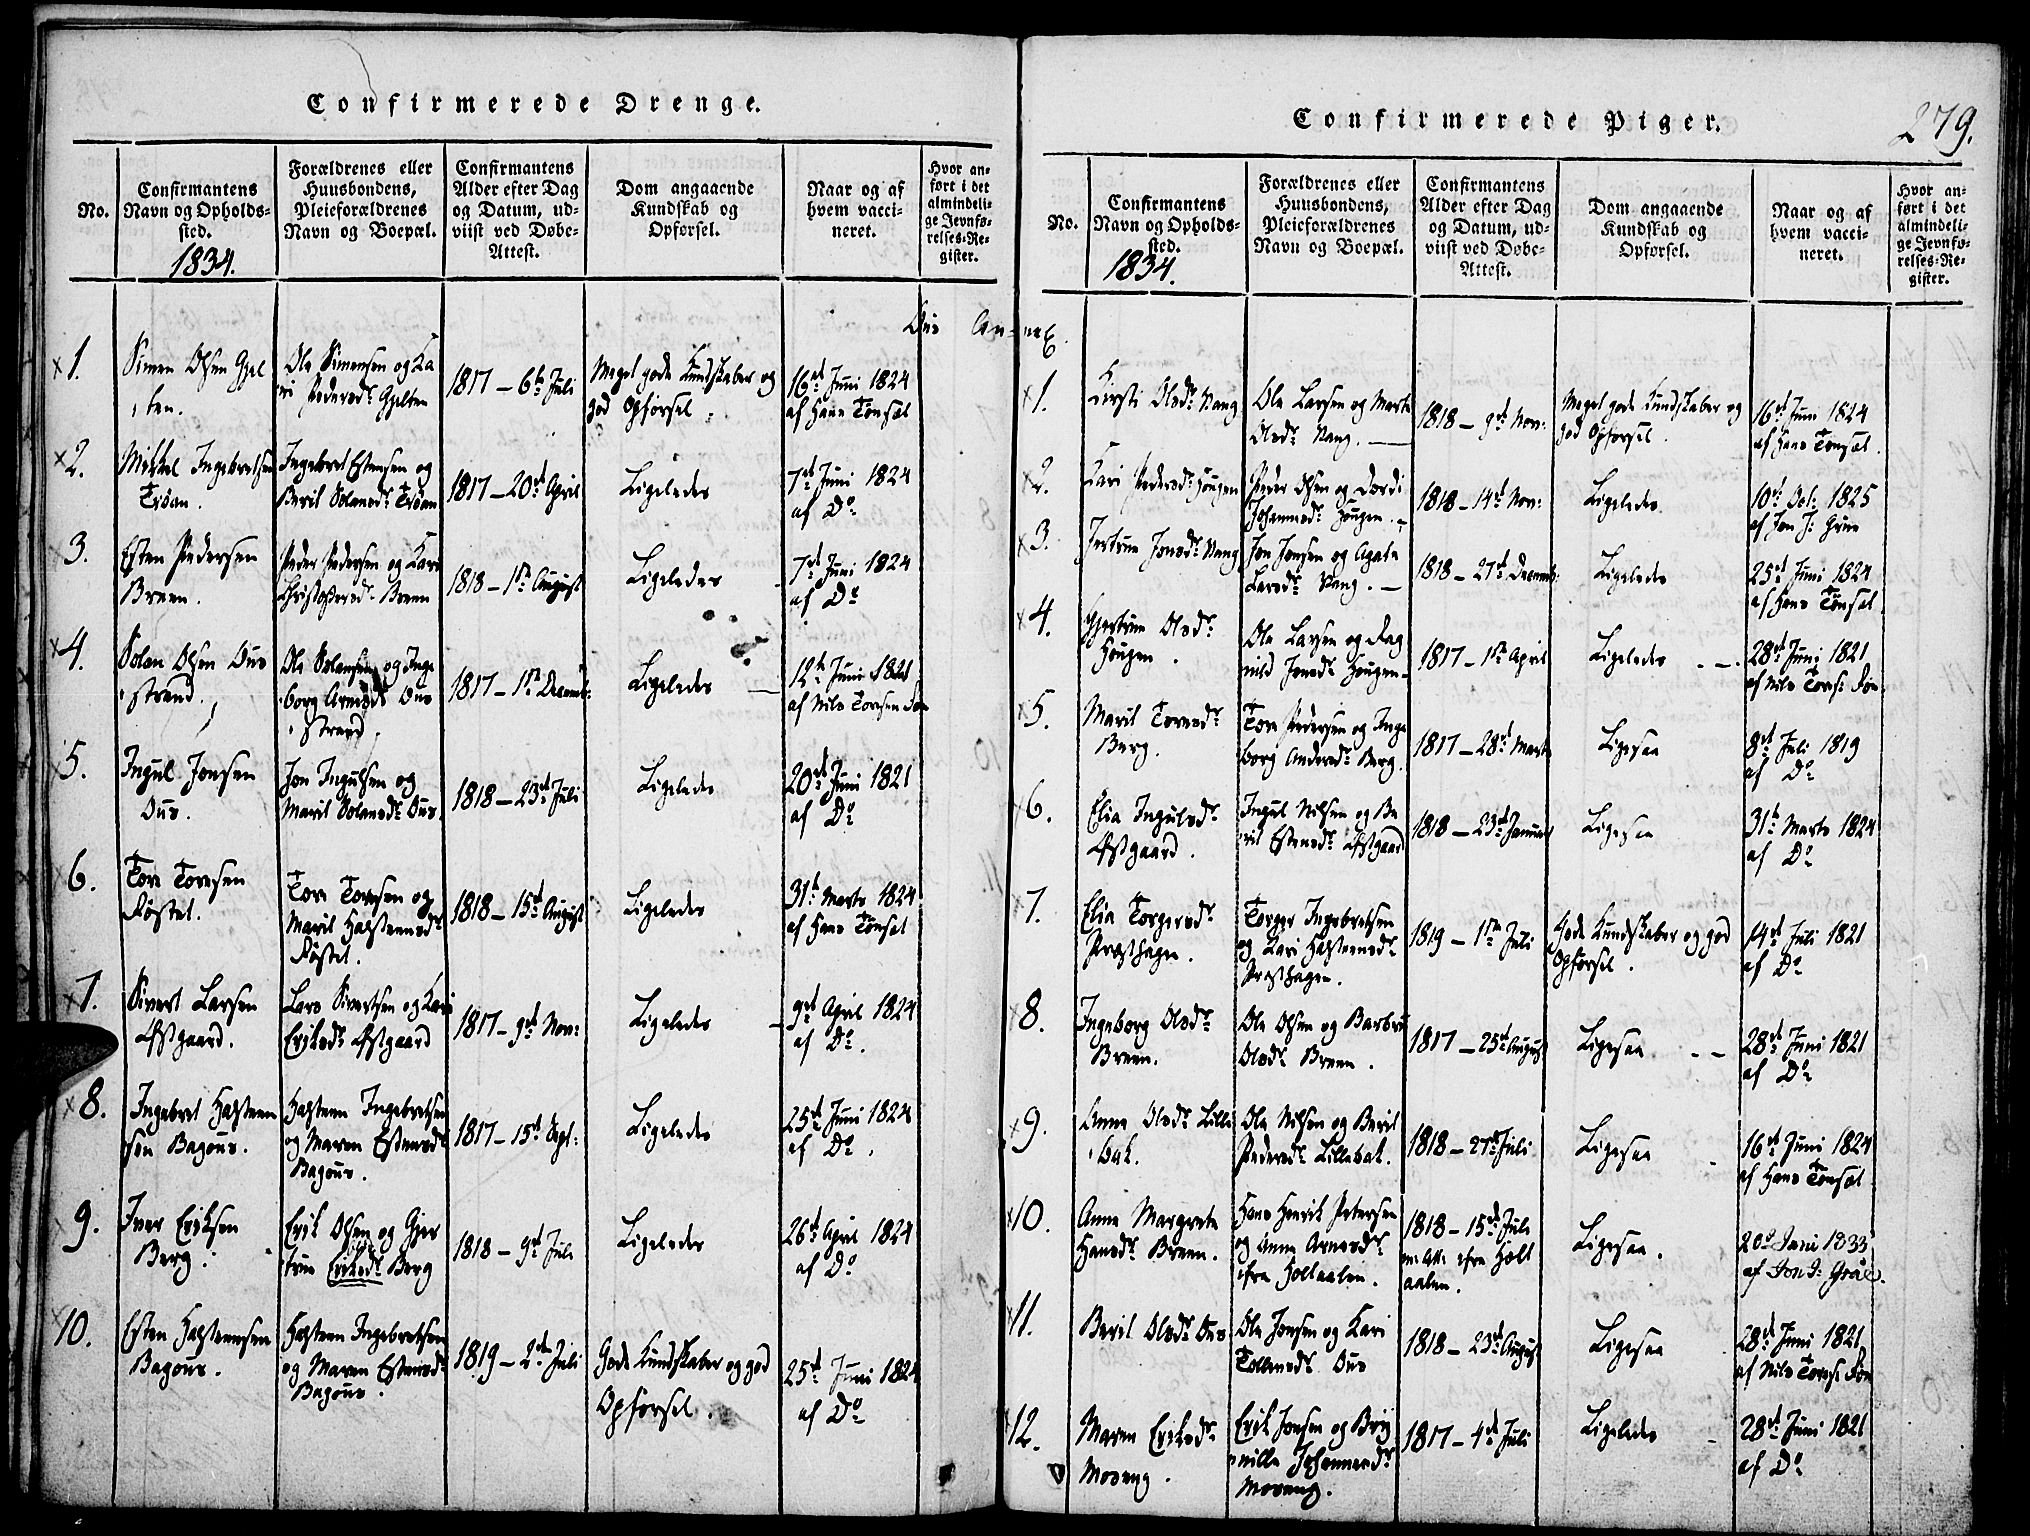 Confirmerede Drenge.
No.
Confirmantens
Navn og Opholds-
sted.
1834.
Forældrenes eller
Huusbondens,
Pleieforældrenes
Navn og Boepæl.
Confirmantens
Alder efter Dag
og Datum, ud-
viist ved Døbe-
Attest.
Dom angaaende
Kundskab og
Opførsel.
Naar og af
hvem vacci-
neret.
Hvor an-
ført i det
almindeli-
ge Jevnfø-
relses-Re-
gister.
Ous Annex.
1.
Simen Olsen Gjel
ten.
Ole Simensen og Ka
ri Pedersd. Gjelten
1817 - 6te Juli
Meget gode Kundskaber og
god Opførsel.
16de Juni 1824
af Hans Tønsæt
2.
Mikkel Ingebretsen
Trøan.
Ingebret Estensen og
Beril Solansd. Trøan
1817 - 20de April
Ligeledes
7de Juni 1824
af Do
3.
Esten Pedersen
Breen.
Peder Pedersen og Kari
Christophersd. Breen
1818 - 1ste August
Ligeledes
7de Juni 1824
af Do
4.
Solan Olsen Ous
strand.
Ole Solansen og Inge
borg Arnesd. Ous
strand.
1817 - 1ste Decemb:
Ligeledes
12te Juni 1821
af Nils Toresen
5.
Ingul Jonsen
Ous.
Jon Ingulsen og
Maril Solansd. Ous.
1818 - 23de Juli
Ligeledes
20de Juni 1821
af Do
6.
Tore Toresen
Røstet.
Tore Toresen og
Maril Halsteensd.
Røstet.
1818 - 15de August
Ligeledes
31te Marts 1824
af Hans Tønsæt
7.
Sivert Larsen
Østgaard.
Lars Sivertsen og Kari
Eriksd. Østgaard
1817 - 9de Nov:
Ligeledes
9de April 1824
af Do.
8.
Ingebret Halsteen
sen Bagous.
Halsteen Ingebretsen
og Maren Estensd.
Bagous.
1817 - 15de Sept:
Ligeledes
25de Juni 1824
af Do.
9.
Iver Eriksen
Berg.
Erik Olsen og Gjer
true Eriksd. Berg
1818 - 9de Juli
Ligeledes
26de April 1824
af Do
10.
Esten Halsteensen
Bagous.
Halsteen Ingebretsen
og Maren Estensd.
Bagous.
1819 - 2den Juli
Gode Kundskaber og god
Opførsel.
25de Juni 1824
af Do
Confirmerede Piger.
279.
No.
Confirmantens
Navn og Opholds-
sted.
1834.
Forældrenes eller
Huusbondens,
Pleieforældrenes
Navn og Boepæl.
Confirmantens
Alder efter Dag
og Datum, ud-
viist ved Døbe-
Attest.
Dom angaaende
Kundskab og
Opførsel.
Naar og af
hvem vacci-
neret.
Hvor an-
ført i det
almindeli-
ge Jevnfø-
relses-Re-
gister.
1.
Kirsti Olsd. Vang
Ole Larsen og Marte
Olsd. Vang.
1818 - 9de Nov:
Meget gode Kundskaber og
god Opførsel.
16de Juni 1824
af Hans Tønsæt.
2.
Kari Pedersd. Hougen
Peder Olsen og Dordi
Johannesd. Hougen.
1818 - 14de Nov:
Ligeledes.
10de Oct: 1825
af Jon J:
3.
Jertrue Jonsd. Vang
Jon Jonsen og Agate
Larsd. Vang.
1818 - 27de Decemb:
Ligeledes
25de Juni 1824
af Hans Tønsæt.
4.
Gjertrue Olsd.
Hougen.
Ole Larsen og Rag
nild Jonsd. Hougen.
1817 - 1ste April
Ligeledes
28de Juni 1821
af Nils Tores:
5.
Maril Toresd.
Berg.
Tore Pedersen og Inge
borg Andersd. Berg.
1817 - 28de Marts
Ligesaa
8de Juli 1819
af Do
6.
Elia Ingulsd.
Østgaard.
Ingul Nilsen og Be
ril Estensd. Østgaard
1818 - 23de Januar
Ligesaa
31te Marts 1824
af Do
7.
Elia Torgersd.
Præsthagen.
Torger Ingebretsen
og Kari Halsteensd.
Præsthagen.
1819 - 1ste Juli
Gode Kundskaber og god
Opførsel.
14de Juli 1821
af Do
8.
Ingeborg Olsd.
Breen.
Ole Olsen og Barbru
Olsd. Breen.
1817 - 25de August
Ligesaa
28de Juni 1821
af Do
9.
Anne Olsd. Lille
bak.
Ole Nilsen og Beril
Pedersd. Lillebak.
1818 - 27de Juli
Ligesaa
16de Juni 1824
af Hans Tønsæt
10.
Anne Margrete
Hansd. Breen.
Hans Henrik Petersen
og Anne Arnesd.
ifra Holtaalen.
1818 - 15de Juli
ifra Holt
aalen.
Ligesaa.
20de Juni 1833
af Jon J:
11.
Beril Olsd. Ous
Ole Jonsen og Kari
Tollensd. Ous
1818 - 23de August
Ligesaa
28de Juni 1821
af Nils Tores:
12.
Maren Eriksd.
Moseng.
Erik Jonsen og Brig
nille Johannesd.
Moseng.
1817 - 4de Juli
Ligeledes
28de Juni 1821
af Do